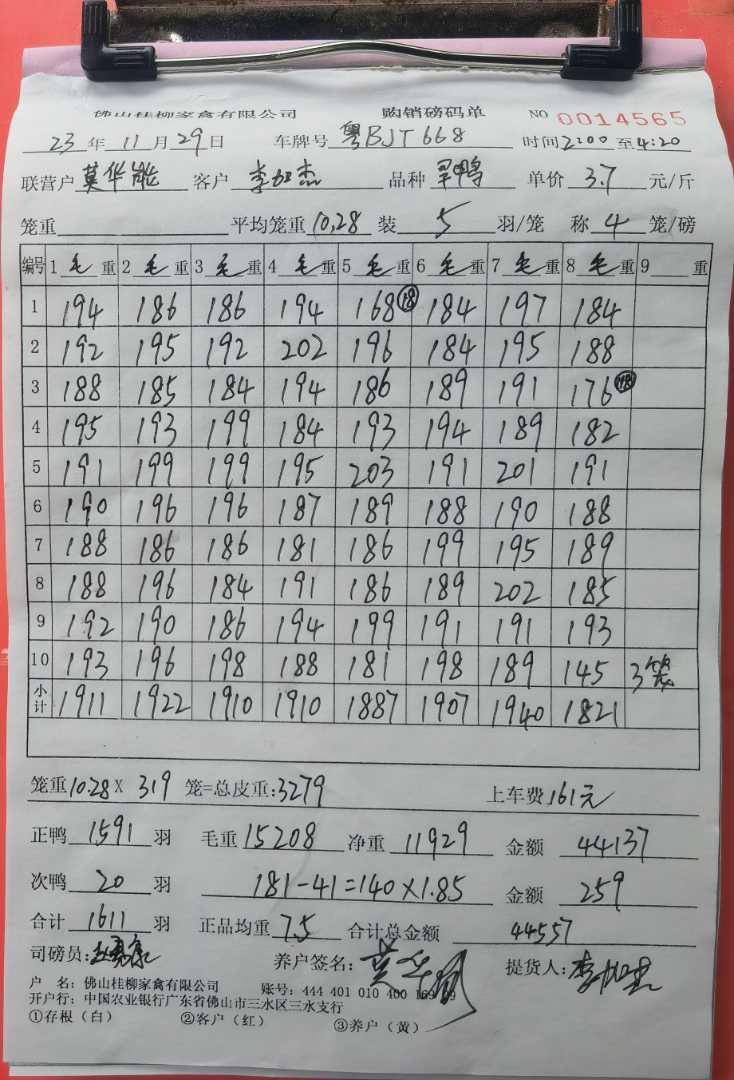 佛山桂柳家禽有限公司 购销磅码单 NO 0014565
23 年 11 月 29 日 车牌号 粤BJT668 时间 2:00 至 4:20
联营户 莫华能 客户 品种 单价 3.7 元/斤
笼重 平均笼重 10.28 装 5 羽/笼 称 4 笼/磅
编号 1 毛 重 2 毛 重 3 毛 重 4 毛 重 5 毛 重 6 毛 重 7 毛 重 8 毛 重 9 重
1 194 186 186 194 168 18 184 197 184
2 192 195 192 202 196 184 195 188
3 188 185 184 194 186 189 191 176 18
4 195 193 199 184 193 194 189 182
5 191 199 199 195 203 191 201 191
6 190 196 196 187 189 188 190 188
7 188 186 186 181 186 199 195 189
8 188 196 184 191 186 189 202 185
9 192 190 186 194 199 191 191 193
10 193 196 198 188 181 198 189 145 3笼
小计 1911 1922 1910 1910 1887 1907 1940 1821
笼重 10.28 X 319 笼=总皮重: 3279 上车费 161元
正鸭 1591 羽 毛重 15208 净重 11929 金额 44137
次鸭 20 羽 181-41=140×1.85 金额 259
合计 1611 羽 正品均重 7.5 合计总金额 44557
司磅员: 养户签名: 莫华能 提货人:
户 名: 佛山桂柳家禽有限公司 账号: 444 401 010 400 169
开户行: 中国农业银行广东省佛山市三水区三水支行
①存根(白) ②客户(红) ③养户(黄)